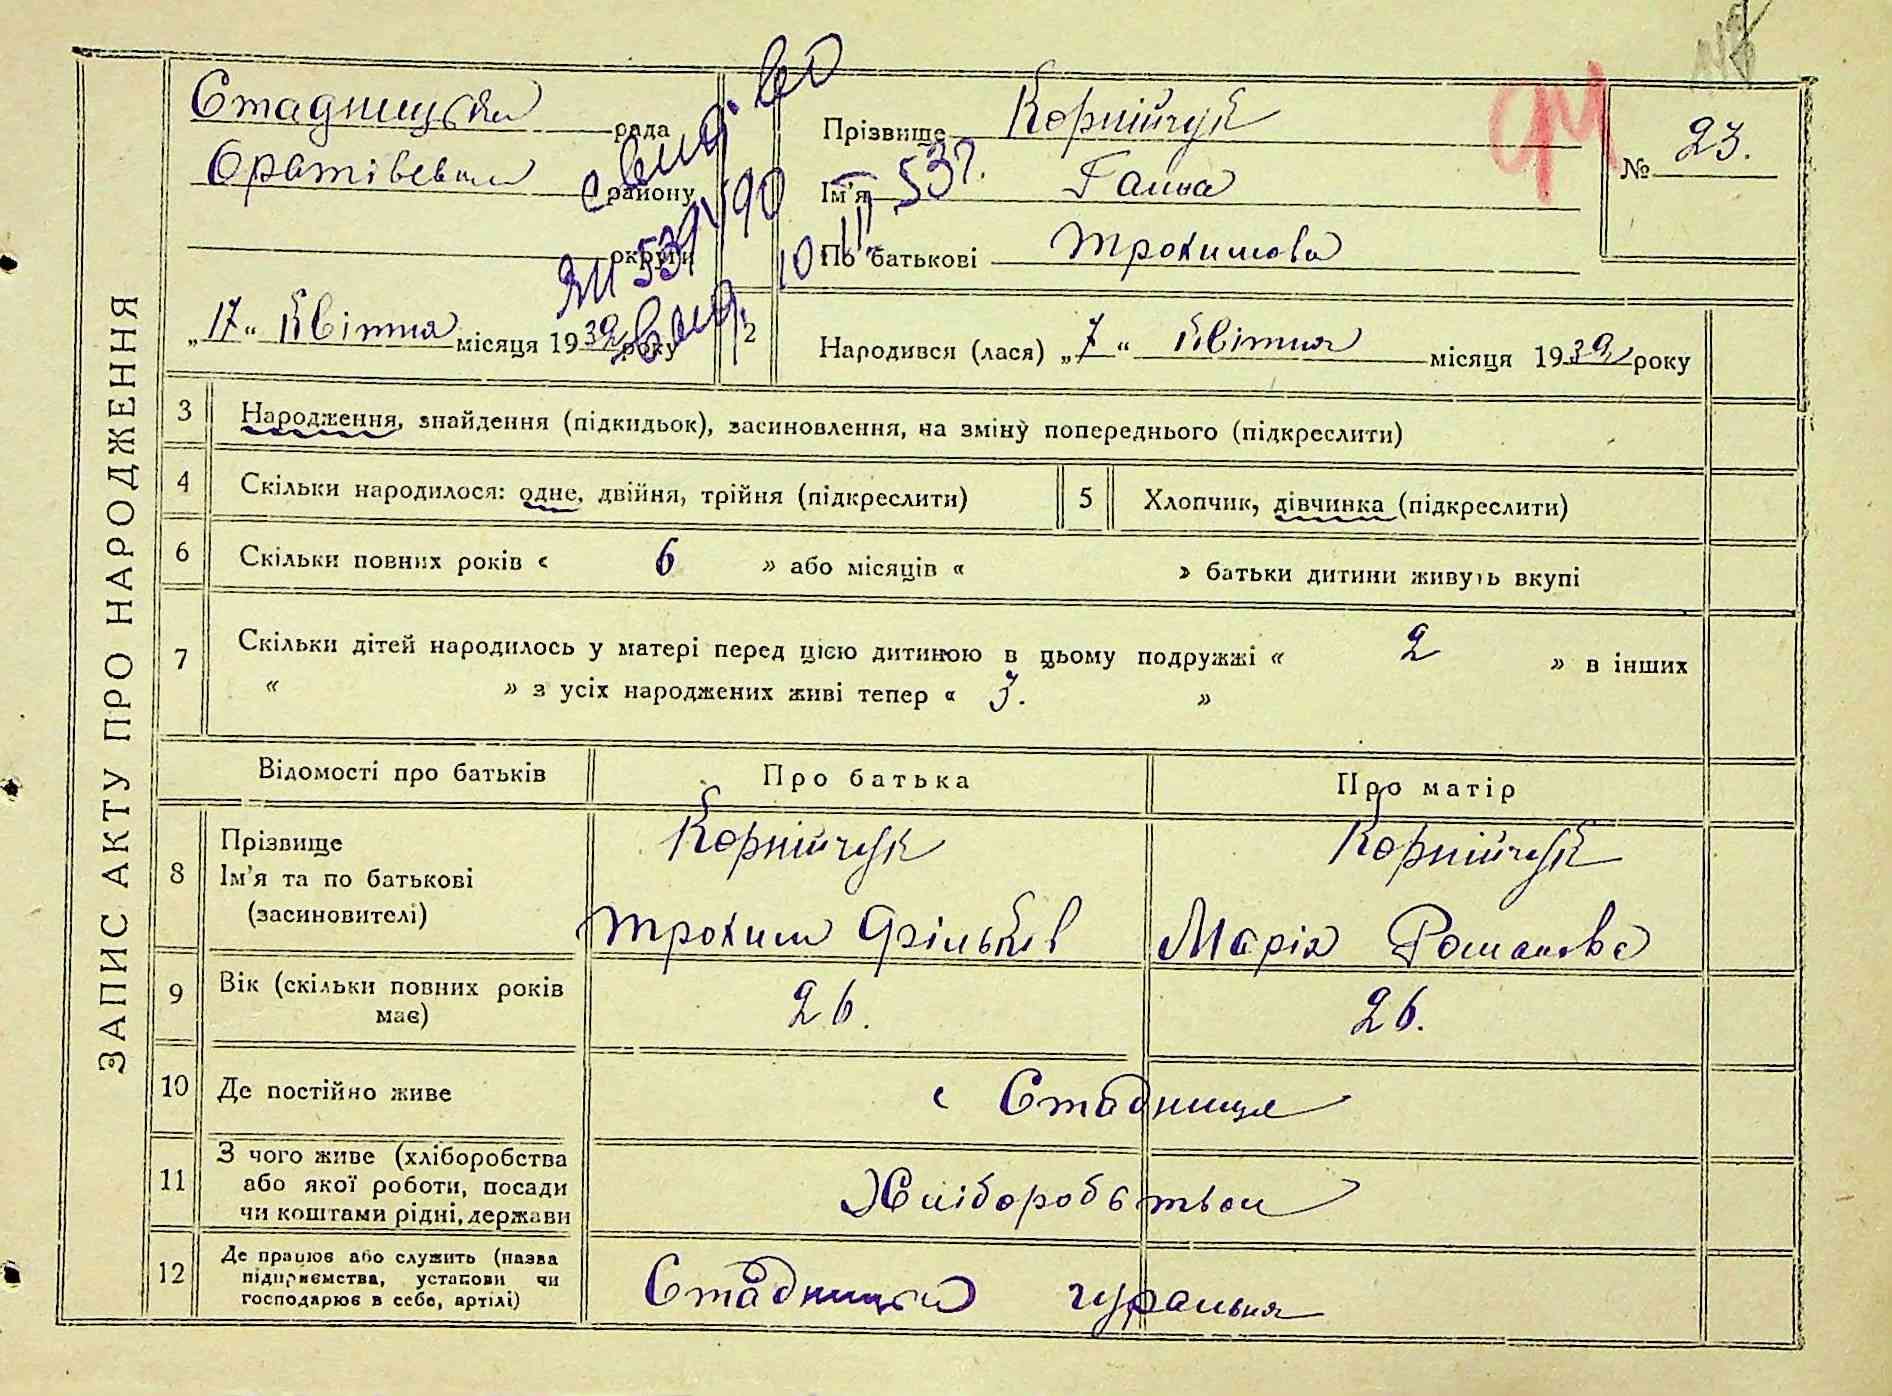 ЗАПИС АКТУ ПРО НАРОДЖЕННЯ
Стадницька рада
Оратівський району
округи
„17“ Квітня місяця 1939 року
Прізвище Корнійчук
Ім'я Ганна
По батькові Трохимова
№ 23.
2 Народився (лася) „7“ Квітня місяця 1939 року
3 Народження, знайдення (підкидьок), засиновлення, на зміну попереднього (підкреслити)
4 Скільки народилося: одне, двійня, трійня (підкреслити)
5 Хлопчик, дівчинка (підкреслити)
6 Скільки повних років « 6 » або місяців « » батьки дитини живуть вкупі
7 Скільки дітей народилось у матері перед цією дитиною в цьому подружжі « 2 » в інших
« » з усіх народжених живі тепер « 3. »
Відомості про батьків
Про батька
Про матір
8 Прізвище
Ім'я та по батькові
(засиновителі)
Корнійчук
Трохим Фільків
Корнійчук
Марія Романова
9 Вік (скільки повних років
має)
26.
26.
10 Де постійно живе
с Стадниця
11 З чого живе (хліборобства
або якої роботи, посади
чи коштами рідні, держави
Хліборобством
12 Де працює або служить (назва
підприємства, установи чи
господарює в себе, артілі)
Стадницька гуральня